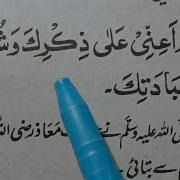 اَعِنِّىْ عَلٰى ذِكْرِكَ وَشُ
بَادَتِكَ۔
صلى الله عليه وسلّم نے معاذ رضى الله
سے بتائى۔